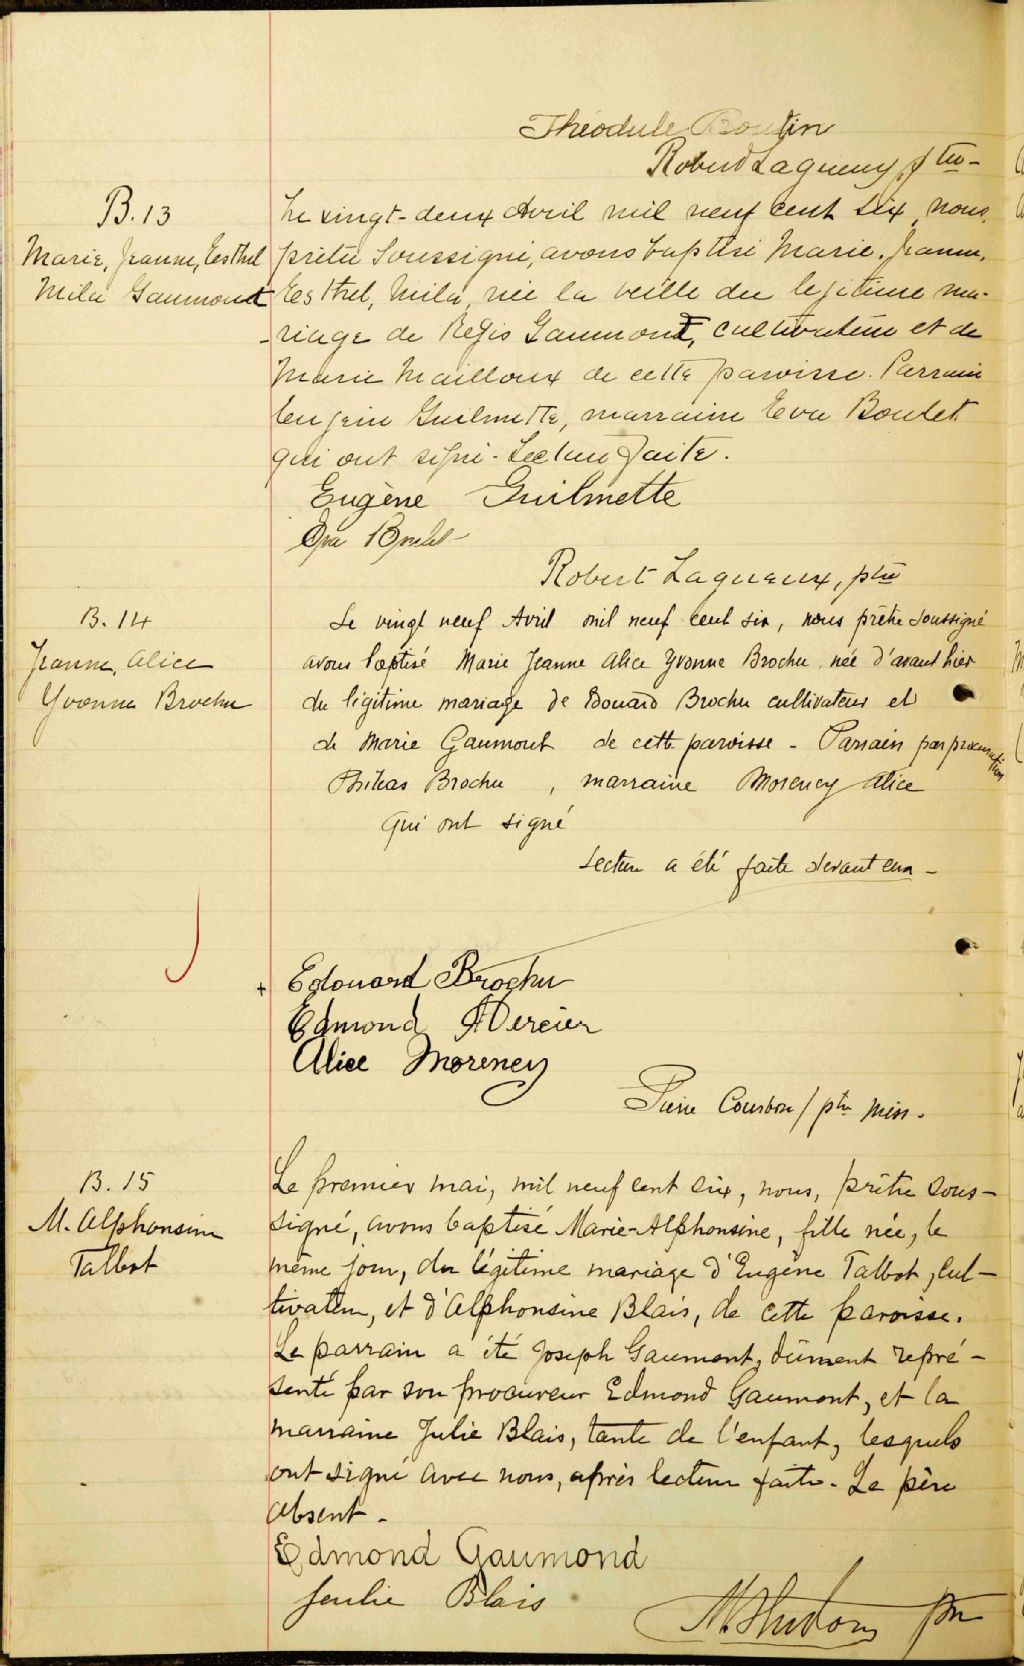 Théodule Boutin
Robert Lagueux ptre-
B. 13
Marie, Jeanne, Esthel
Mila Gaumont
Le vingt-deux Avril mil neuf cent six, nous,
prêtre soussigné, avons baptisé Marie, Jeanne,
Esthel, Mila, née la veille du legitime ma-
-riage de Régis Gaumont, cultivateur et de
Marie Mailloux de cette paroisse. Parrain
Eugène Guilmette, marraine Eva Boulet
qui ont signé. Lecture faite.
Eugène Guilmette
Eva Boulet
Robert Lagueux, ptre
B. 14
Jeanne, Alice
Yvonne Brochu
Le vingt neuf Avril mil neuf cent six, nous prêtre soussigné
avons baptisé Marie Jeanne Alice Yvonne Brochu née d'avant hier
du légitime mariage de Edouard Brochu cultivateur et
de Marie Gaumont de cette paroisse - Parrain par procuration
Brochu, marraine Morency Alice
qui ont signé
Lecture a été faite devant eux -
+ Edouard Brochu
Edmond Mercier
Alice Morency
Pierre Courbon / ptre miss.
B. 15
M. Alphonsine
Talbot
Le premier mai, mil neuf cent six, nous, prêtre sous-
signé, avons baptisé Marie-Alphonsine, fille née, le
même jour, du légitime mariage d'Eugène Talbot, cul-
tivateur, et d'Alphonsine Blais, de cette paroisse.
Le parrain a été Joseph Gaumont, dûment repré-
senté par son procureur Edmond Gaumont, et la
marraine Julie Blais, tante de l'enfant, lesquels
ont signé avec nous, après lecture faite. Le père
absent -
Edmond Gaumond
Julie Blais
Hudon ptre